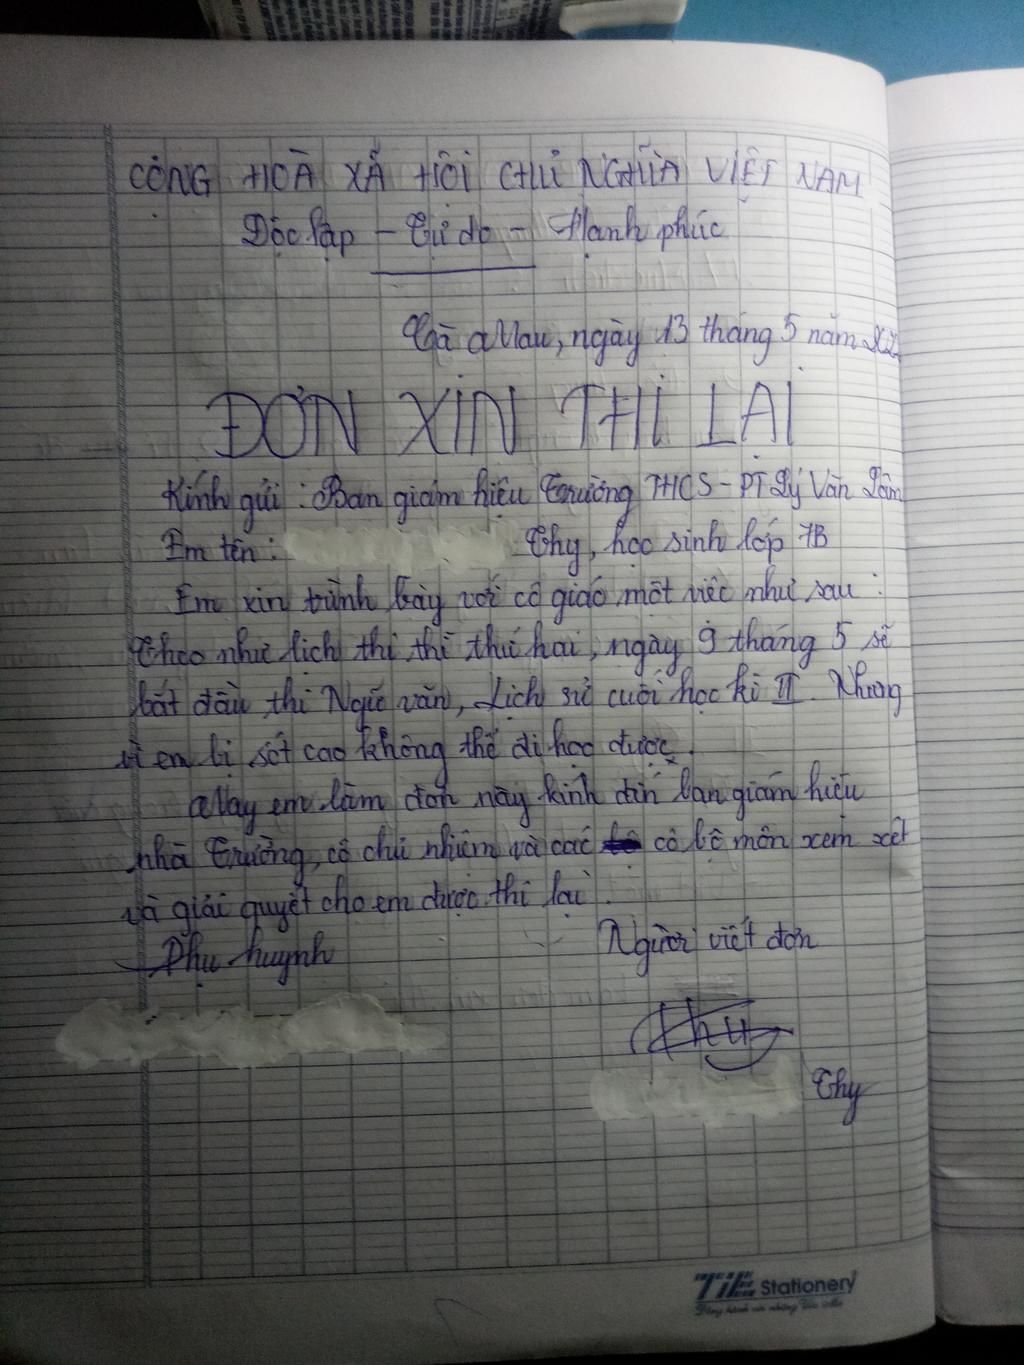 CỘNG HOÀ XÃ HỘI CHỦ NGHĨA VIỆT NAM
Độc lập - Tự do - Hạnh phúc
Cà Mau, ngày 13 tháng 5 năm
ĐƠN XIN THI LẠI
Kính gửi: Ban giám hiệu Trường THCS-PT Lý Văn Lâm
Em tên: Thy, học sinh lớp 7B
Em xin trình bày với cô giáo một việc như sau:
Theo như lịch thi thì thứ hai, ngày 9 tháng 5 sẽ
bắt đầu thi Ngữ văn, Lịch sử cuối học kì II. Nhưng
vì em bị sốt cao không thể đi học được.
Nay em làm đơn này kính đến ban giám hiệu
nhà Trường, cô chủ nhiệm và các cô bộ môn xem xét
và giải quyết cho em được thi lại.
Phụ huynh Người viết đơn
Thy
Thy
TiE Stationery